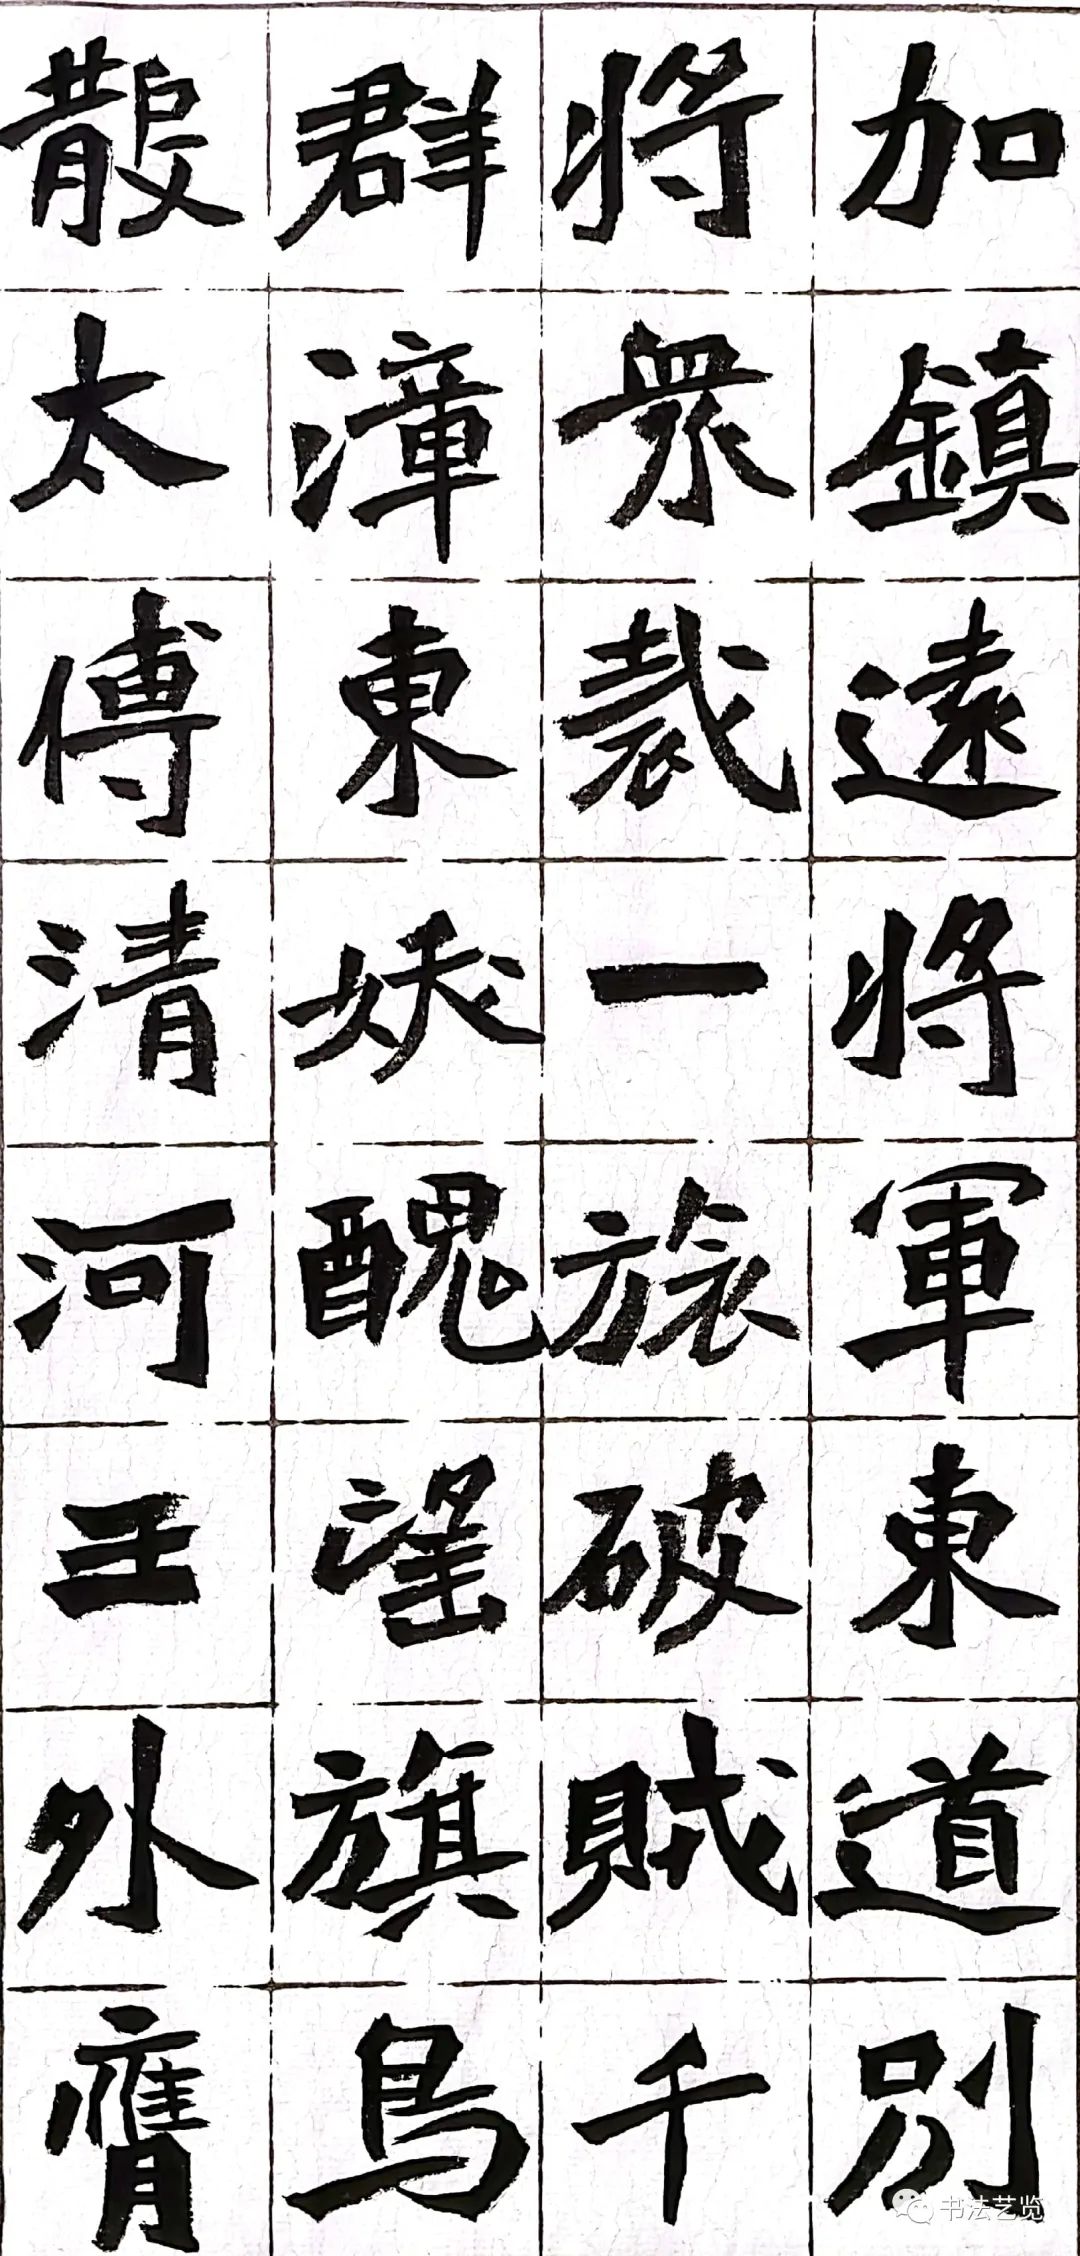 加鎮遠將軍東道別
將眾裁一旅破賊千
群漳東妖醜望旗鳥
散太傅清河王外膺
书法艺览